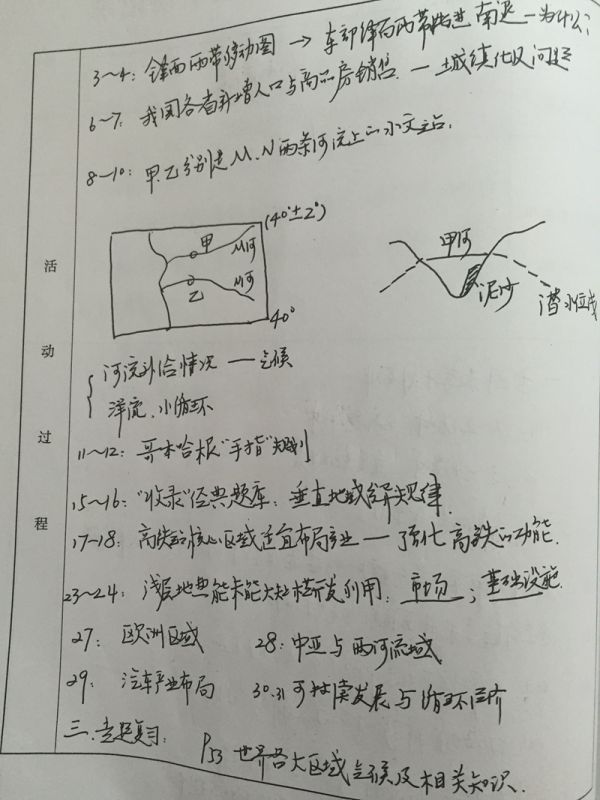 3~4: 锋面雨带移动图 → 东部锋面雨带推进、南退 — 为什么?
6~7: 我国各省新增人口与商品房销售. — 城镇化及问题
8~10: 甲.乙分别是M、N两条河流上的水文站.
(40°±2°)
甲 M河
乙 M河
40°
甲河
泥沙
潜水位线
河流补给情况 — 气候
洋流. 水循环
11~12: 哥本哈根"手指"规划
15~16: "收录"经典题库: 垂直地域分异规律.
17~18: 高铁站核心区域适宜布局产业 — 强化高铁的功能.
23~24: 浅层地热能未能大规模开发利用: 市场; 基础设施.
27: 欧洲区域 28: 中亚与两河流域
29: 汽车产业布局 30.31 可持续发展与循环经济
三. 专题复习:
P53 世界各大区域气候及相关知识.
活动过程